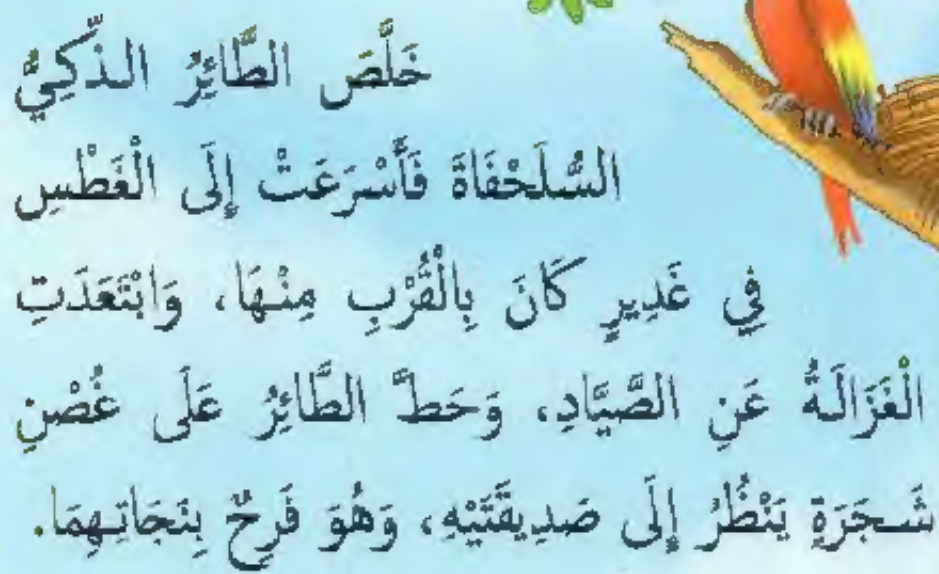 خَلَّصَ الطَّائِرُ الذَّكِيُّ
السُّلَحْفَاةَ فَأَسْرَعَتْ إِلَى الْغَطْسِ
فِي غَدِيرٍ كَانَ بِالْقُرْبِ مِنْهَا، وَابْتَعَدَتِ
الْغَزَالَةُ عَنِ الصَّيَّادِ، وَحَطَّ الطَّائِرُ عَلَى غُصْنِ
شَجَرَةٍ يَنْظُرُ إِلَى صَدِيقَتَيْهِ، وَهُوَ فَرِحٌ بِنَجَاتِهِمَا.